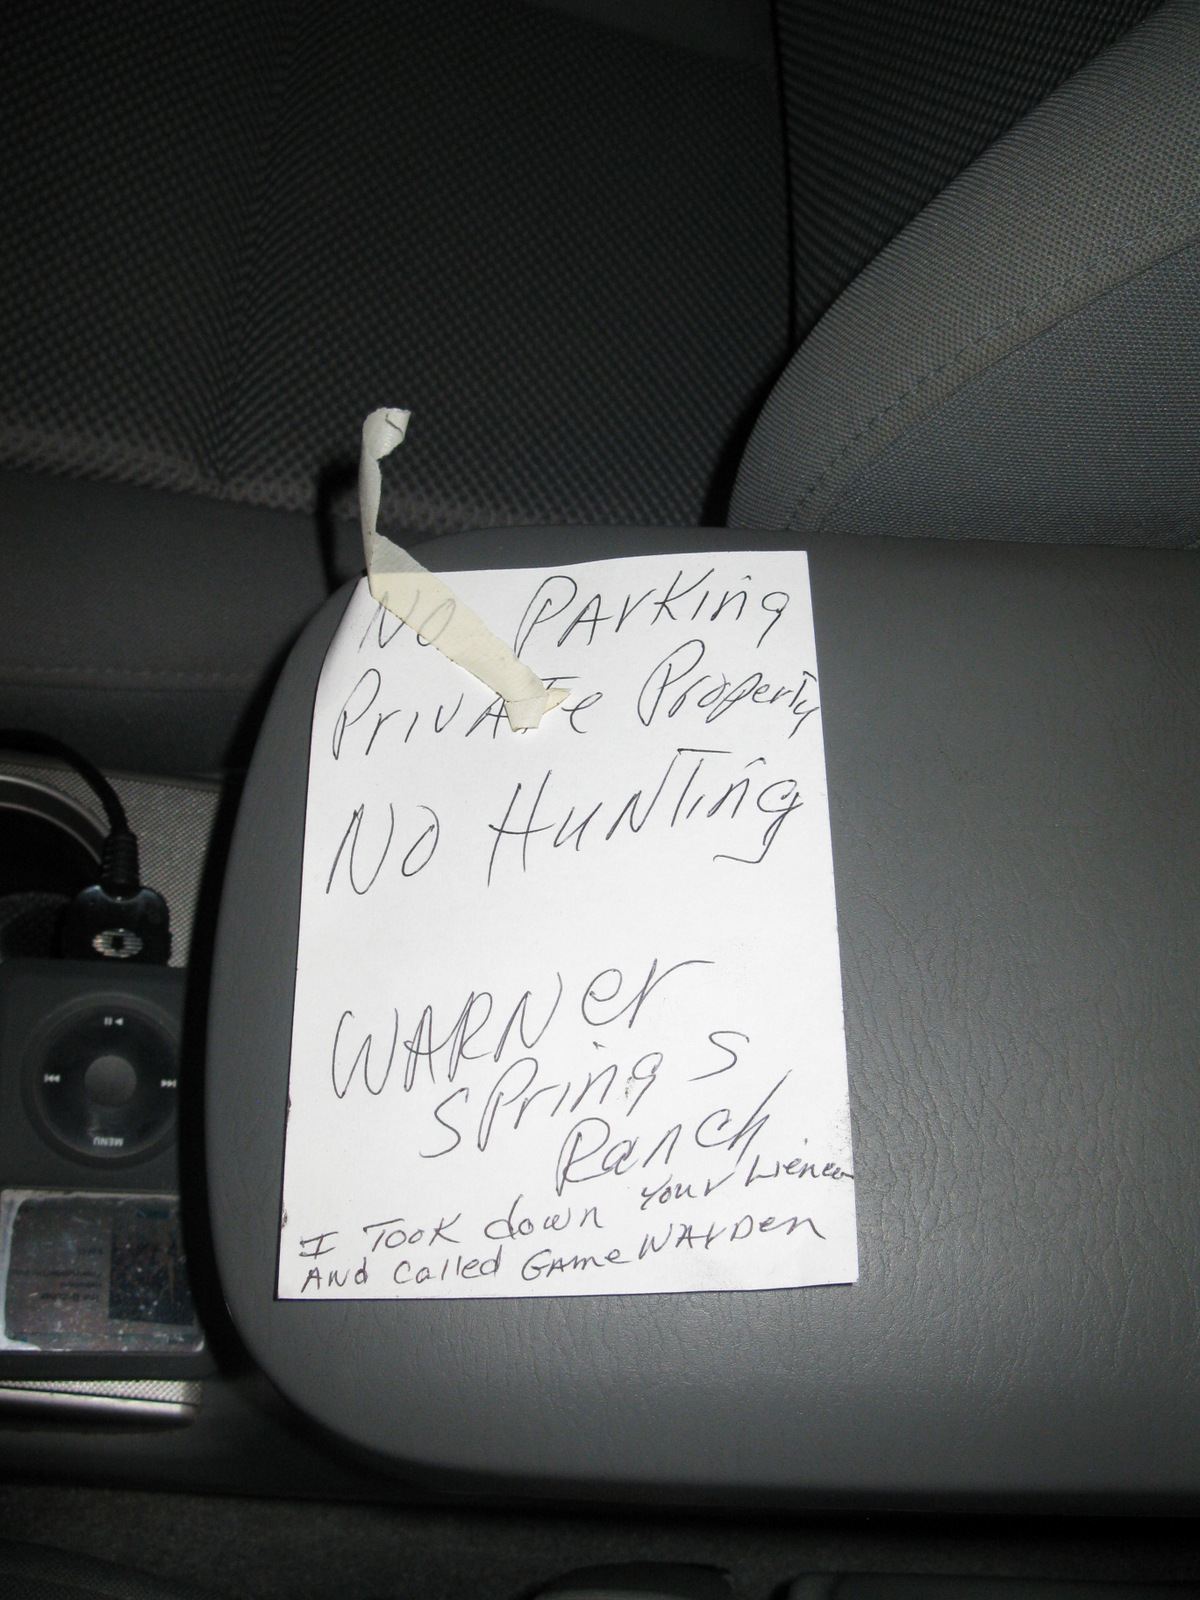 No PArKing
PrivATe Property
No HuNTing
WARNer
SPrings
Ranch
I TooK down your Licence
ANd Called Game WArDen
MENU